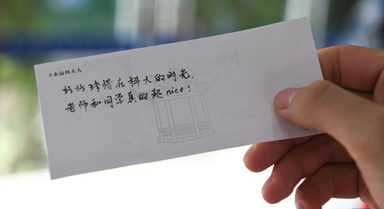 #永远科大人
好好珍惜在科大的时光,
老师和同学真的超nice!